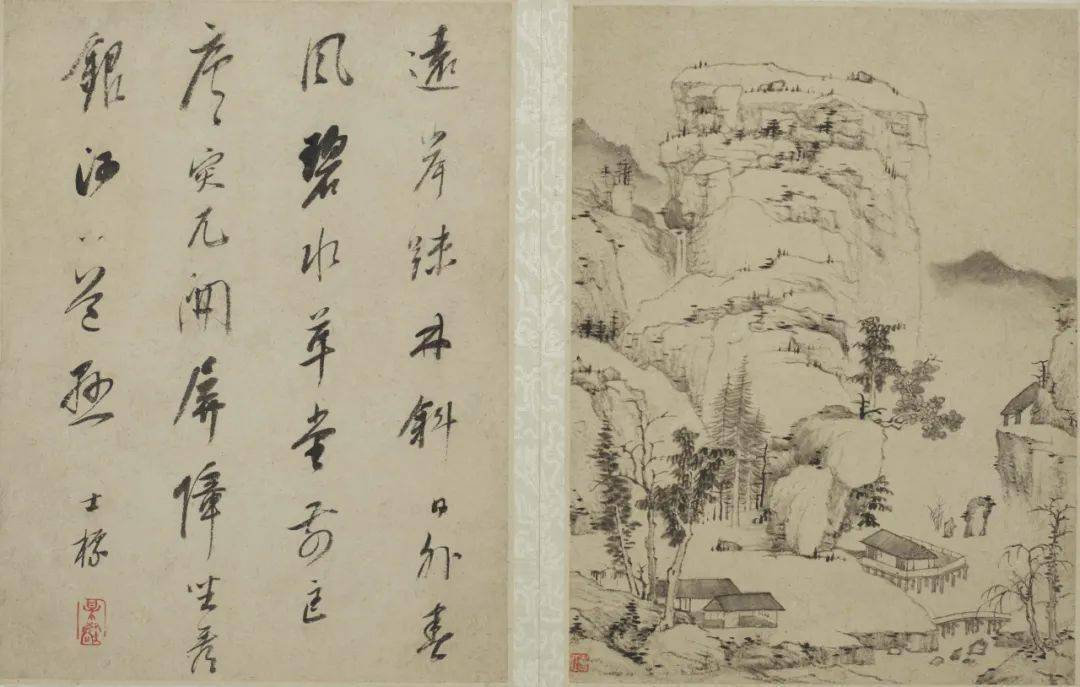 遠岸疎林斜日外春
風碧水草堂前匡
廬突兀開屏障坐看
銀河懸
士標